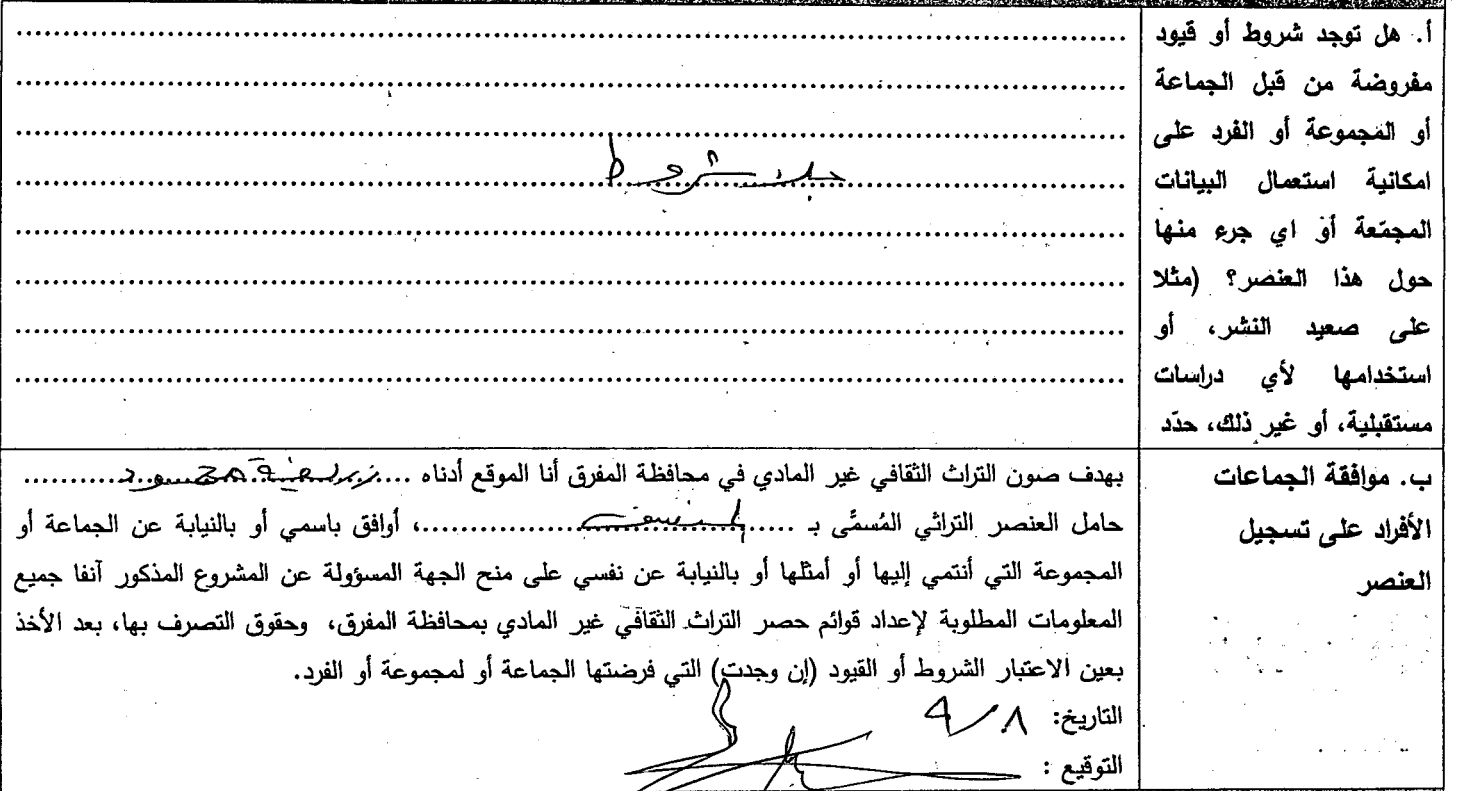 أ. هل توجد شروط أو قيود
مفروضة من قبل الجماعة
أو المجموعة أو الفرد على
امكانية استعمال البيانات
المجمّعة أو اي جرء منها
حول هذا العنصر؟ (مثلا
على صعيد النشر، أو
استخدامها لأي دراسات
مستقبلية، أو غير ذلك، حدّد
شروط
ب. موافقة الجماعات
الأفراد على تسجيل
العنصر
بهدف صون التراث الثقافي غير المادي في محافظة المفرق أنا الموقع أدناه ....
حامل العنصر التراثي المُسمَّى بـ ....، أوافق باسمي أو بالنيابة عن الجماعة أو
المجموعة التي أنتمي إليها أو أمثلها أو بالنيابة عن نفسي على منح الجهة المسؤولة عن المشروع المذكور آنفا جميع
المعلومات المطلوبة لإعداد قوائم حصر التراث الثقافي غير المادي بمحافظة المفرق، وحقوق التصرف بها، بعد الأخذ
بعين الاعتبار الشروط أو القيود (إن وجدت) التي فرضتها الجماعة أو لمجموعة أو الفرد.
التاريخ: ٨/٩
التوقيع :